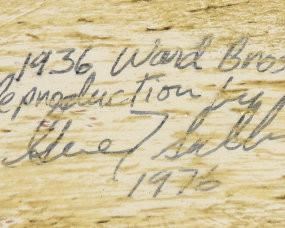 1936 Ward Bros
Reproduction by
1976